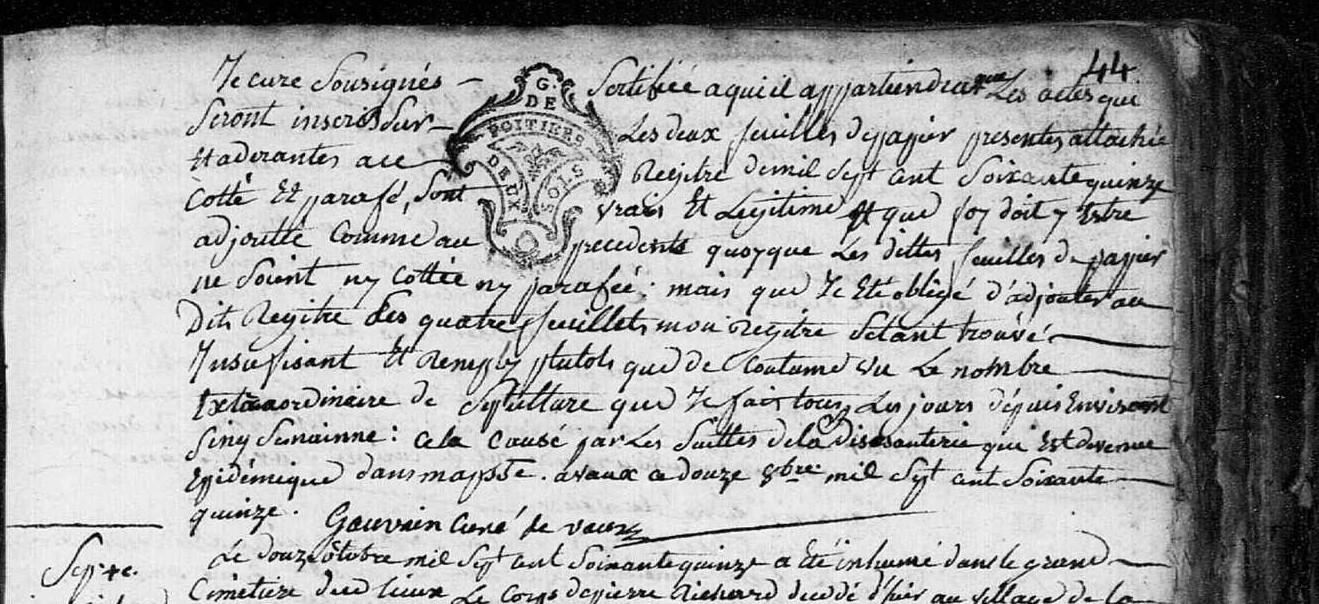 44.
Je curé Sousignés – Sertifiée a qui il appartiendrat que Les actes que
Seront inscrits Sur – Les deux feuilles de papier presentes attachée
Et aderantes a ce Regitre de mil Sept cent Soixante quinze
Cotté Et parafé, Sont vrais Et Legitime et que foy doit y Estre
adjoutté Comme au precedents quoyque Les dittes feuilles de papier
ne Soient ny Cottée ny parafée : mais que Je Eté obligé d'adjouter au
dits Regitre des quatre feuillets mon regitre Sétant trouvé
Insufisant Et Remply plutots que de Coutume vu Le nombre
Extraordinaire de Sepulture que Je fais tous Les jours depuis Environt
Sinq Semainne : cela causé par Les Suittes de la Dissanterie que Est devenue
Epidémique dans ma psse. a vaux ce douze 8bre mil Sept cent Soixante
quinze. Gauvain Curé de vaux
Le douze octobre mil Sept cent Soixante quinze a été inhumé dans le grand
Sep:re.
Cimetiere dudit lieux Le Corps de pierre Richard décédé d'hier au village de la
G. DE
POITIERS
DEUX SOLS